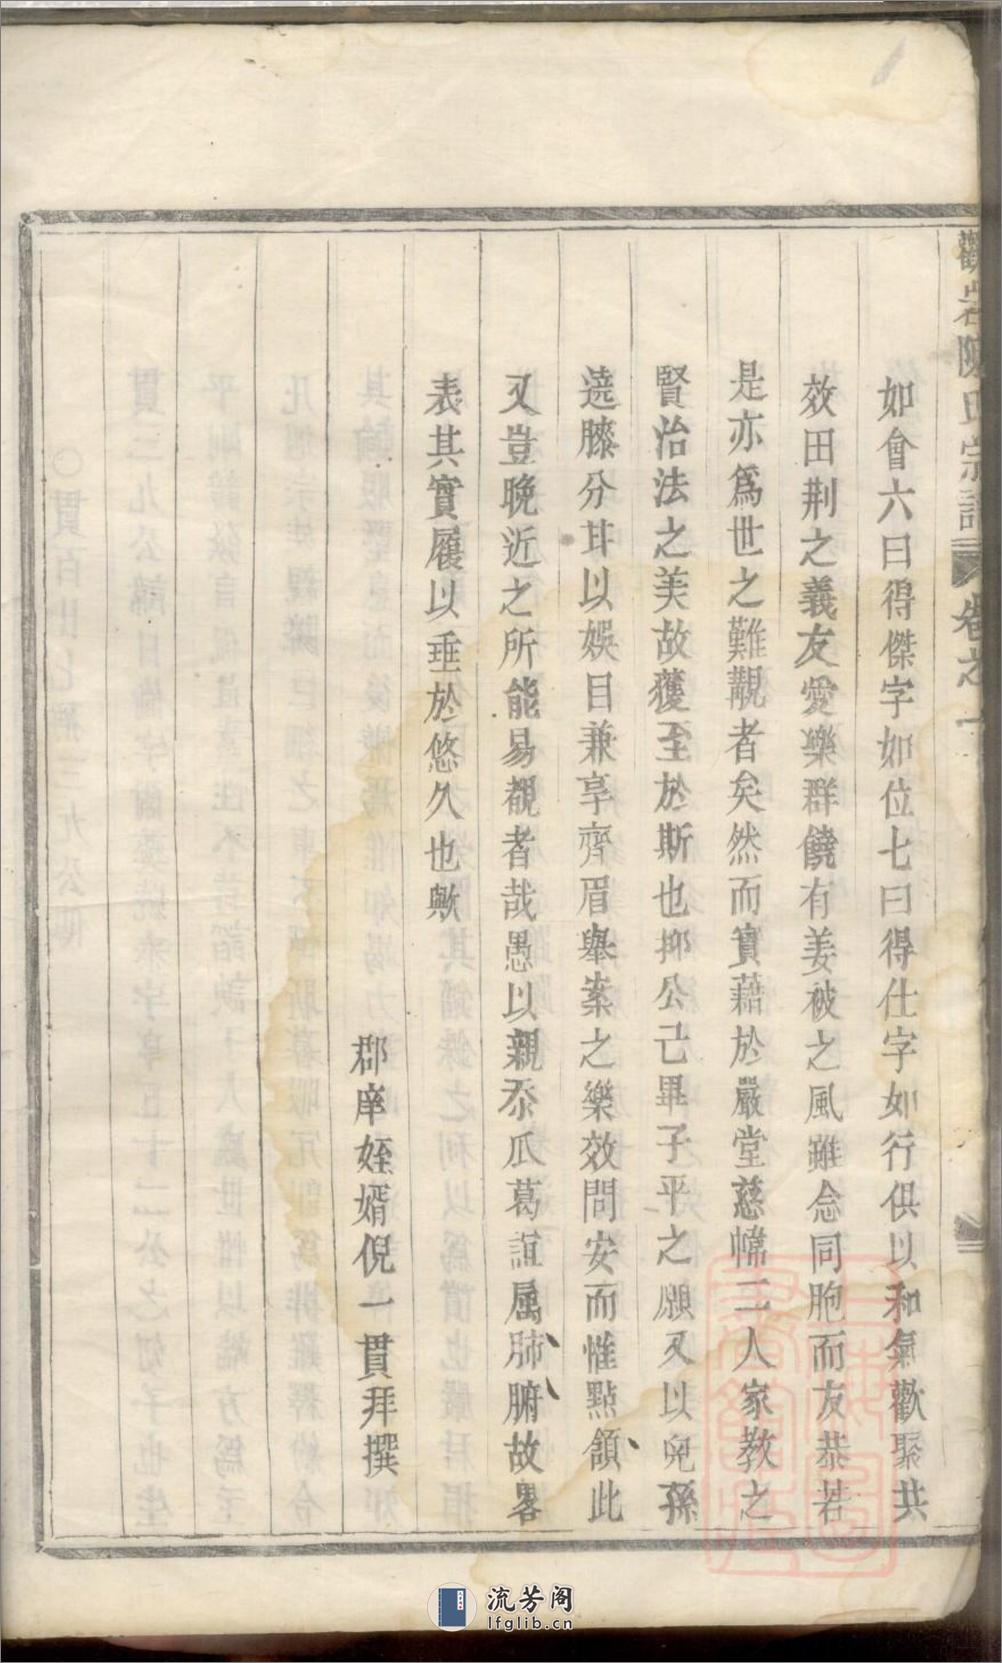 如會六曰得傑字如位七曰得仕字如行俱以和氣歡聚共
效田荆之義友愛樂群饒有姜被之風雖念同胞而友恭若
是亦爲世之難覯者矣然而實藉於嚴堂慈幃二人家教之
賢治法之美故獲至於斯也抑公己畢子平之願又以兒孫
遶膝分甘以娛目兼享齊眉舉案之樂效問安而惟點頷此
又豈晚近之所能易覩者哉愚以親忝瓜葛誼属肺腑故畧
表其實履以垂於悠久也歟
郡庠姪婿倪一貫拜撰
陳氏宗譜
卷之一
流芳阁
lfglib.cn